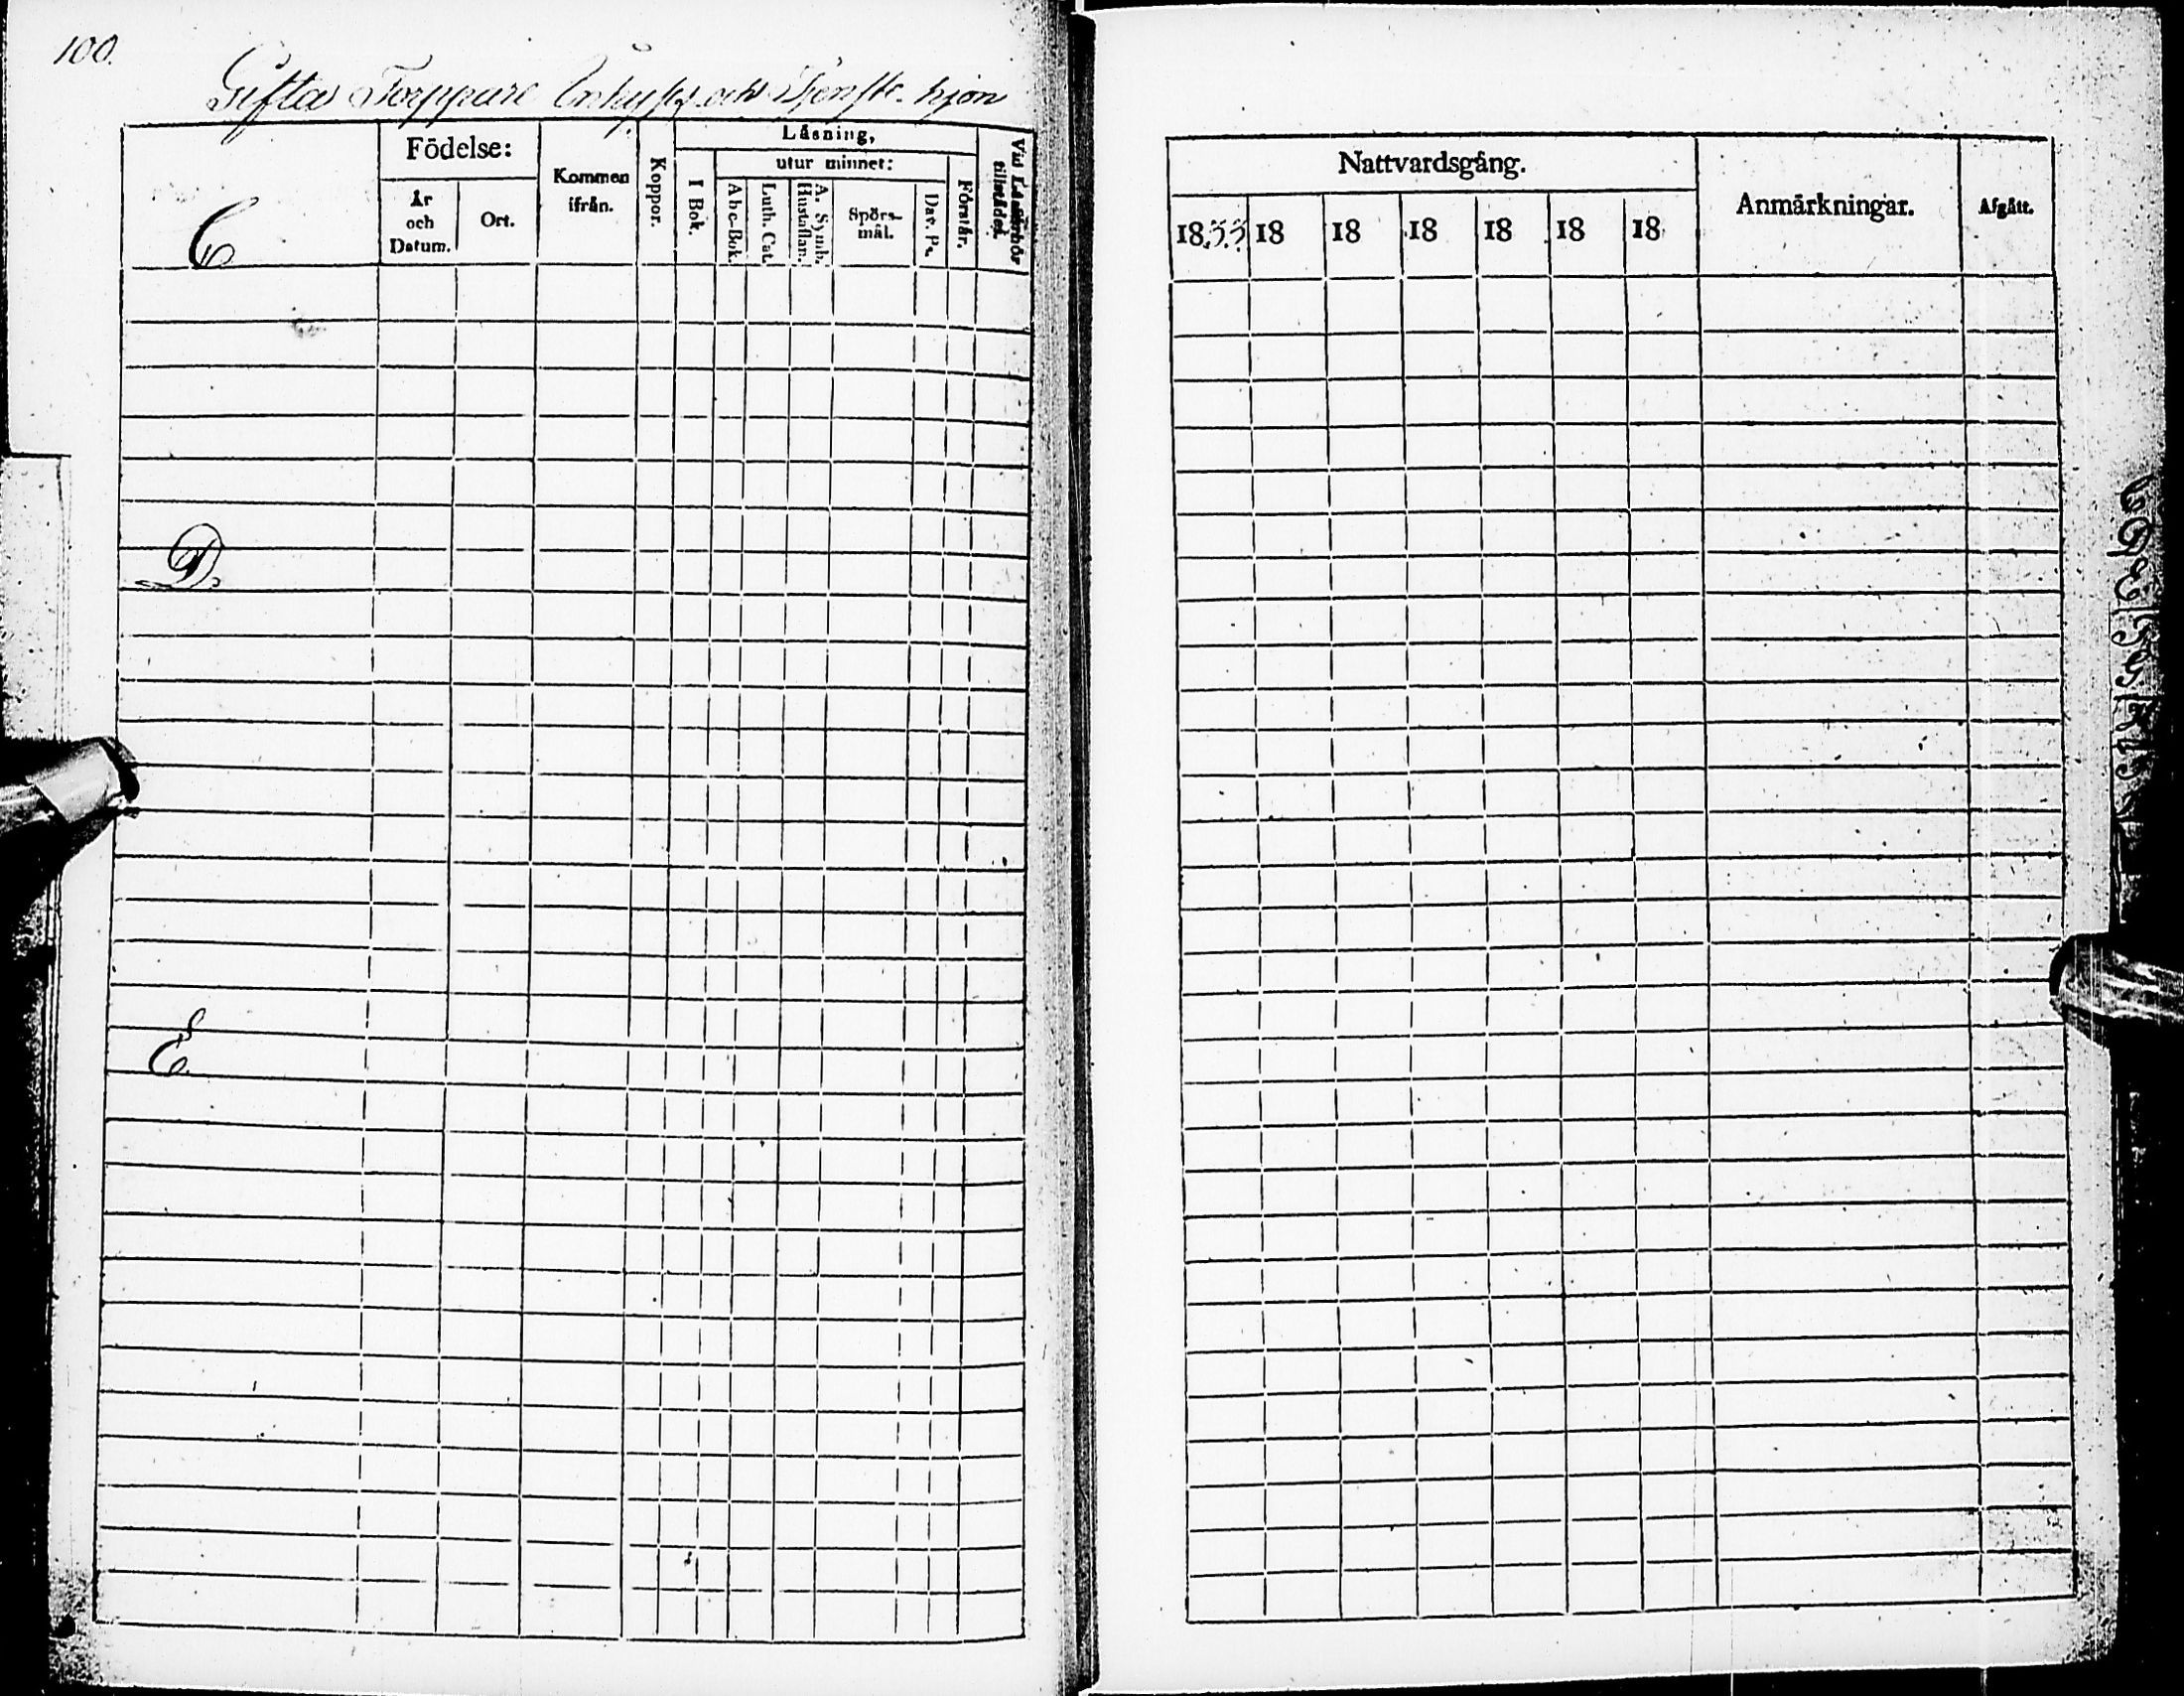 100.
Gifta Torppare Inhyses och Tjenste-hjon
Födelse:
År och Datum.
Ort.
Kommen ifrån.
Koppor.
Läsning,
I Bok.
utur minnet:
Abc-Bok.
Luth. Cat.
A. Symb. Hustaflan.
Spörs-mål.
Dav. Ps.
Förstår.
Vid Läsförhör tillstädes.
C
D.
E
Nattvardsgång.
1833 18 18 18 18 18 18
Anmärkningar.
Afgått.